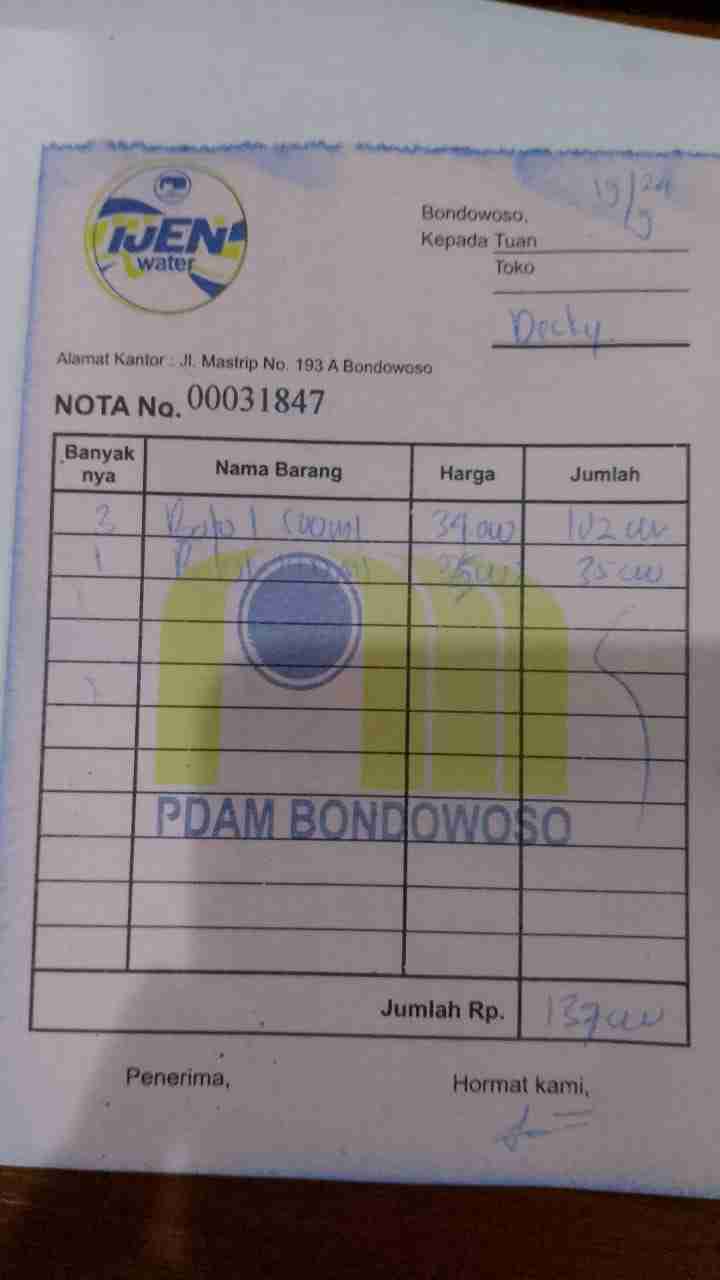 IJEN
water
19/9 24
Bondowoso,
Kepada Tuan
Toko
Decky
Alamat Kantor : Jl. Mastrip No. 193 A Bondowoso
NOTA No. 00031847
Banyak nya Nama Barang Harga Jumlah
3 Botol 500 ml 34.000 102 000
1 35 000
PDAM BONDOWOSO
Jumlah Rp. 137 000
Penerima, Hormat kami,